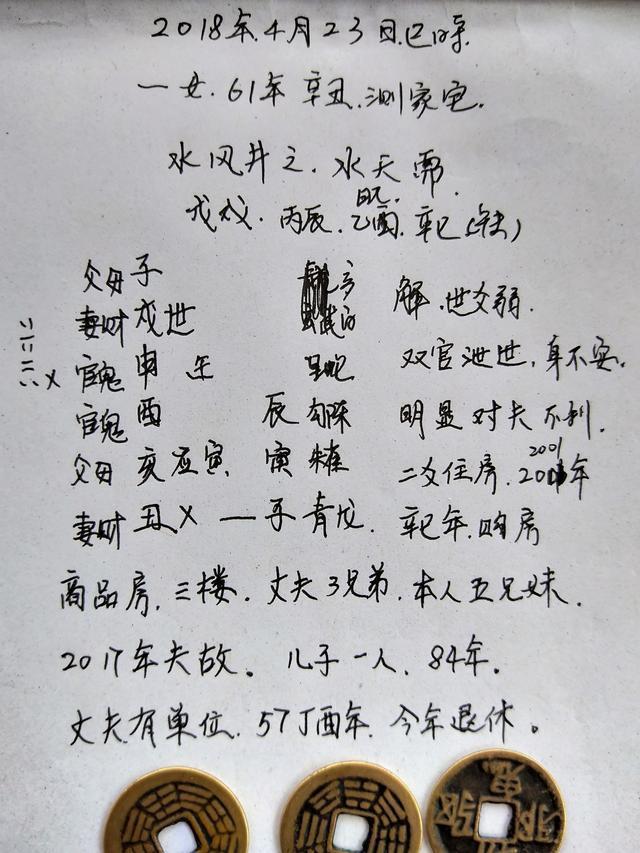 2018年.4月23日.巳时.
一女.61年 辛丑.测家宅.
水风井之.水天需.
戊戌.丙辰.乙酉.辛巳(
父母子
妻财戌世
官鬼申
官鬼酉 辰 勾陈
父母亥应寅 寅 朱雀
妻财丑X —子青龙.
解.世爻弱.
双官泄世,身不安.
明显对夫不利.
二爻住房.2001年
辛巳年.购房
商品房.三楼.丈夫3兄弟.本人五兄妹.
2017年夫故。儿子一人.84年.
丈夫有单位.57丁酉年.今年退休。